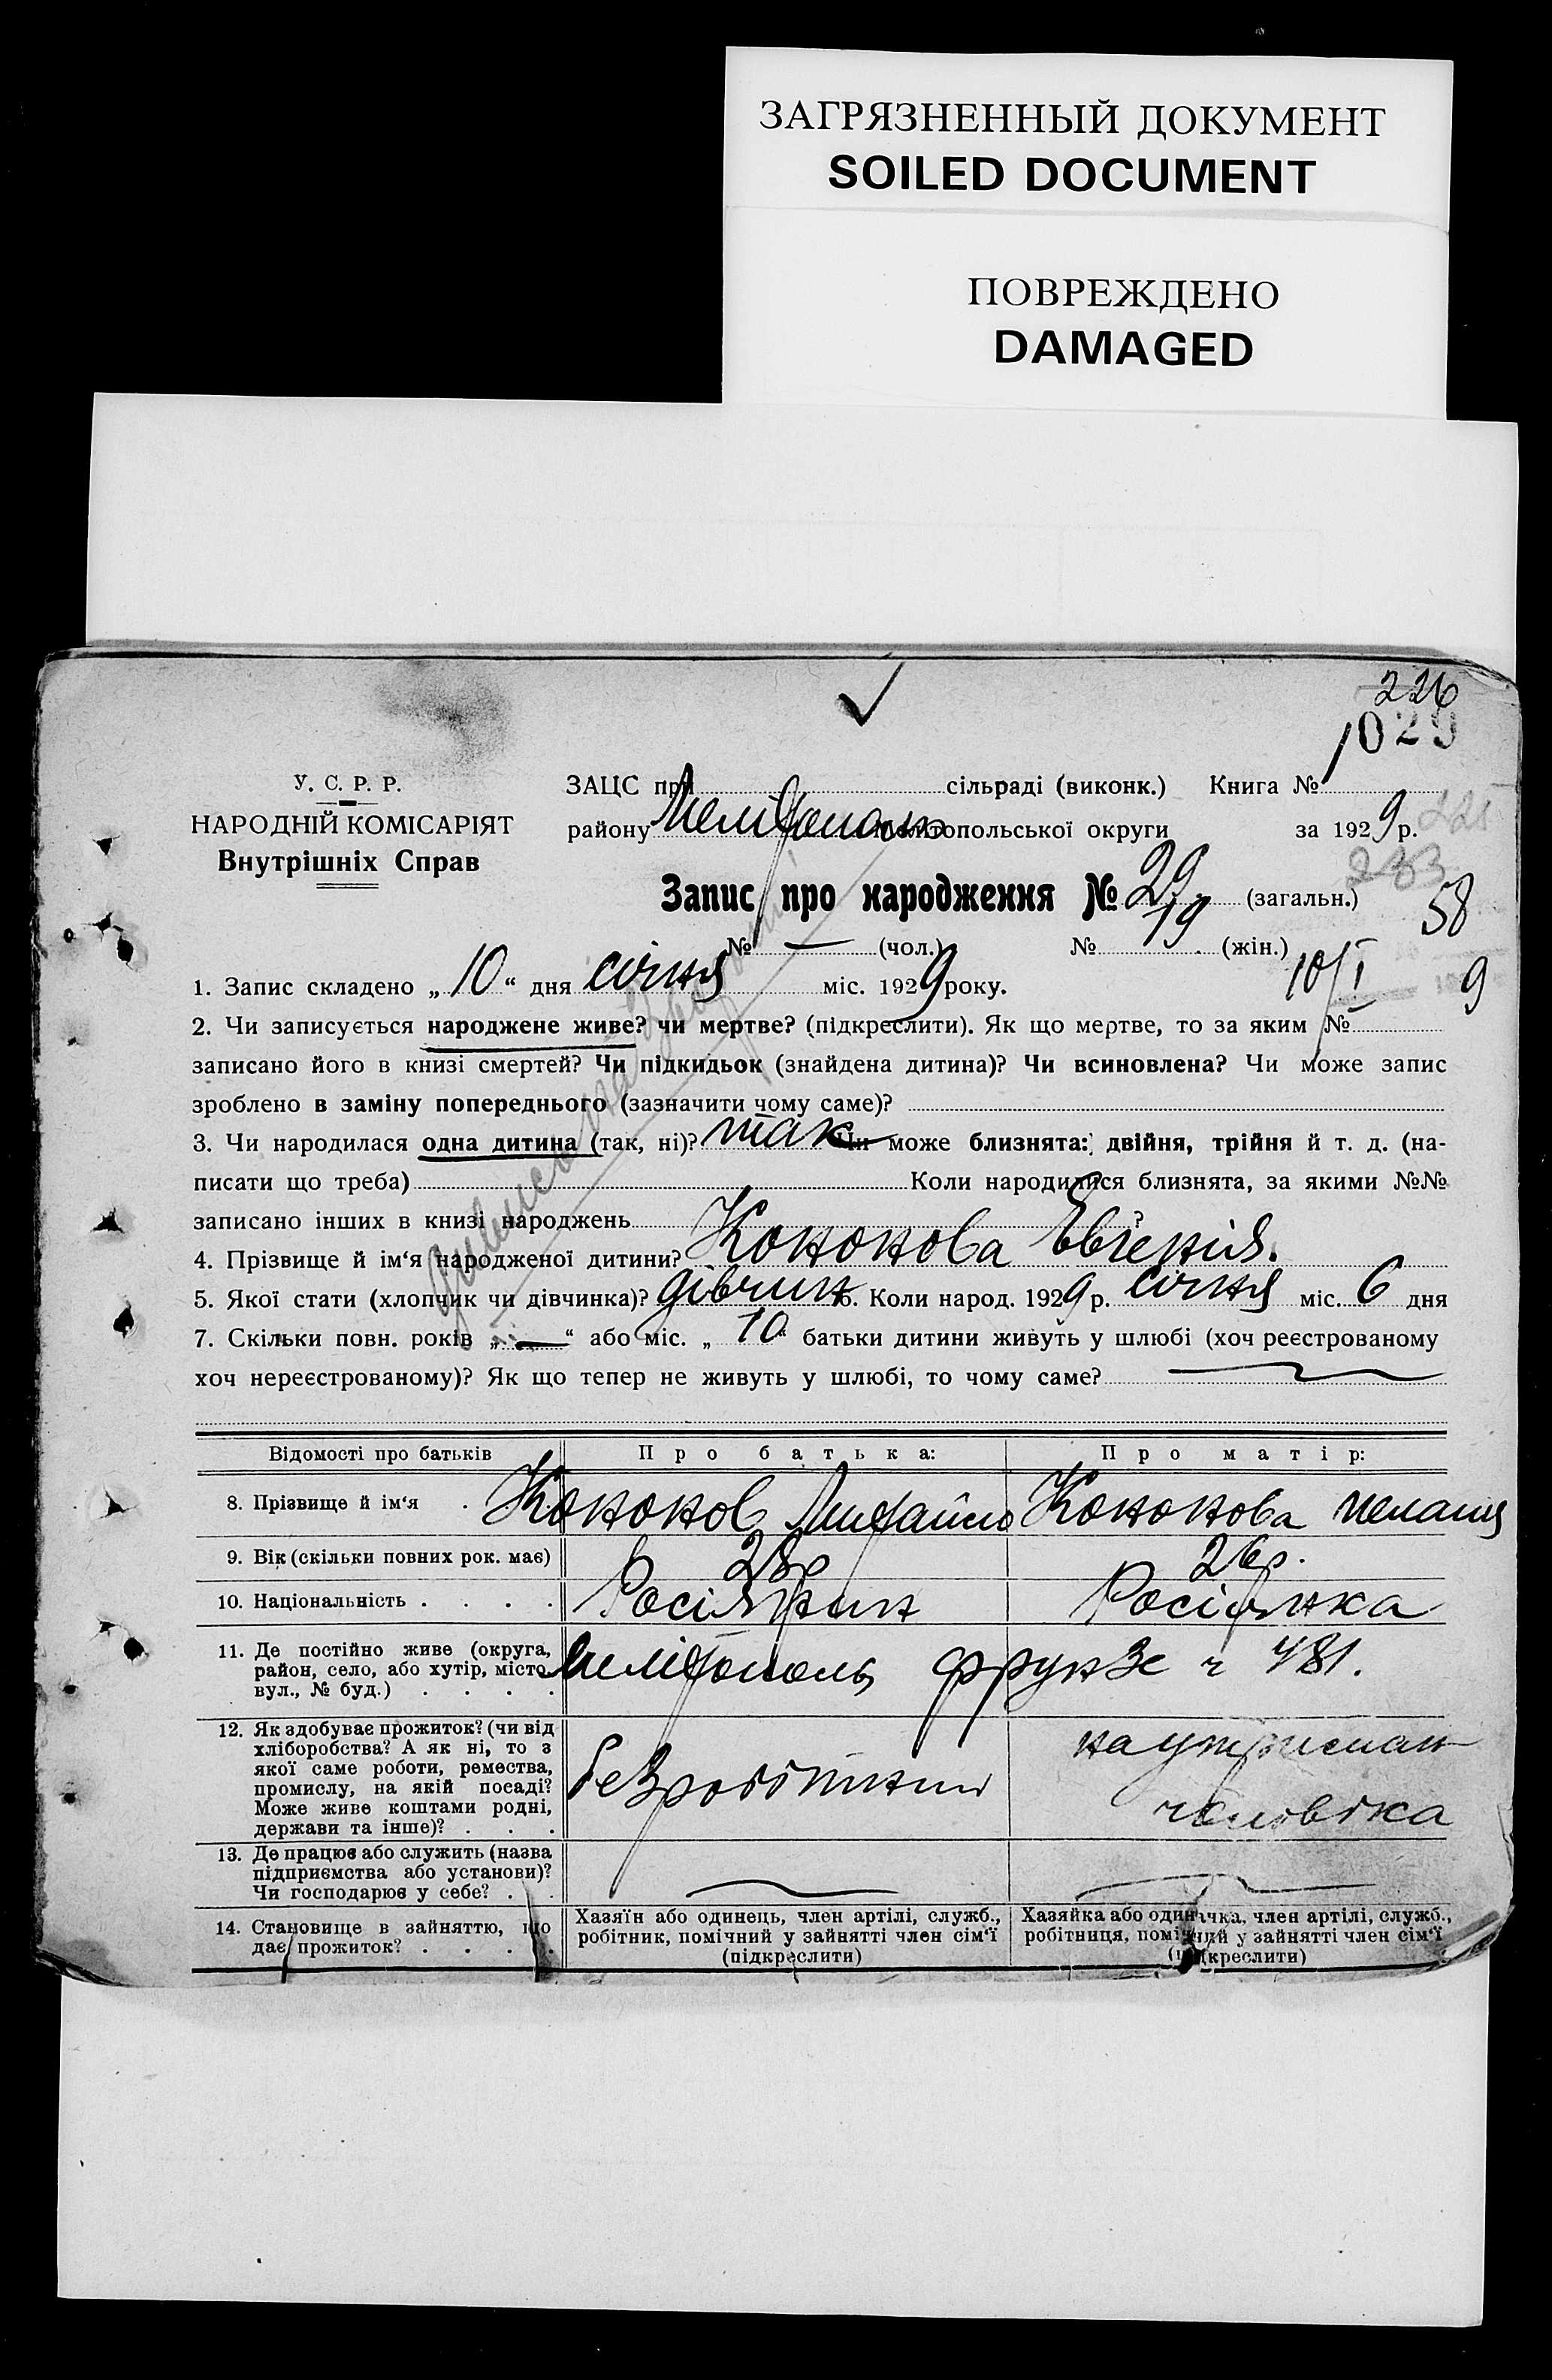 ЗАГРЯЗНЕННЫЙ ДОКУМЕНТ
SOILED DOCUMENT
ПОВРЕЖДЕНО
DAMAGED
226
1029
У. С. Р. Р.
НАРОДНІЙ КОМІСАРІЯТ
Внутрішніх Справ
ЗАЦС при сільраді (виконк.) Книга №
району Мелітополь Мелітопольської округи за 1929 р.
225
233
Запис про народження № 29 (загальн.)
58
№ — (чол.) № 19 (жін.)
1. Запис складено „10“ дня січня міс. 1929 року.
10/I 9
2. Чи записується народжене живе? чи мертве? (підкреслити). Як що мертве, то за яким №
записано його в книзі смертей? Чи підкидьок (знайдена дитина)? Чи всиновлена? Чи може запис
зроблено в заміну попереднього (зазначити чому саме)?
3. Чи народилася одна дитина (так, ні)? так Чи може близнята: двійня, трійня й т. д. (на-
писати що треба) Коли народилися близнята, за якими №№
записано інших в книзі народжень ?
4. Прізвище й ім‘я народженої дитини? Кононова Євгенія.
5. Якої стати (хлопчик чи дівчинка)? дівчин 6. Коли народ. 1929 р. січня міс. 6 дня
7. Скільки повн. років „—“ або міс. „10“ батьки дитини живуть у шлюбі (хоч реєстрованому
хоч нереєстрованому)? Як що тепер не живуть у шлюбі, то чому саме?
Відомості про батьків Про батька: Про матір:
8. Прізвище й ім‘я . Кононов Михайло Кононова Меланія
9. Вік (скільки повних рок. має) 28р 26р.
10. Національність . . . . Росіянин Росіянка
11. Де постійно живе (округа,
район, село, або хутір, місто,
вул., № буд.) . . . .
Мелітополь Фрунзе ч 481.
12. Як здобуває прожиток? (чи від
хліборобства? А як ні, то з
якої саме роботи, ремества,
промислу, на якій посаді?
Може живе коштами родні,
держави та інше)? . . .
безробітний
на утриман
чоловіка
13. Де працює або служить (назва
підприємства або установи)?
Чи господарює у себе? . .
14. Становище в зайняттю, що
дає прожиток? . . . .
Хазяїн або одинець, член артілі, служб.,
робітник, помічний у зайнятті член сім‘ї
(підкреслити)
Хазяйка або одиначка, член артілі, служб.,
робітниця, помічний у зайнятті член сім‘ї
(підкреслити)